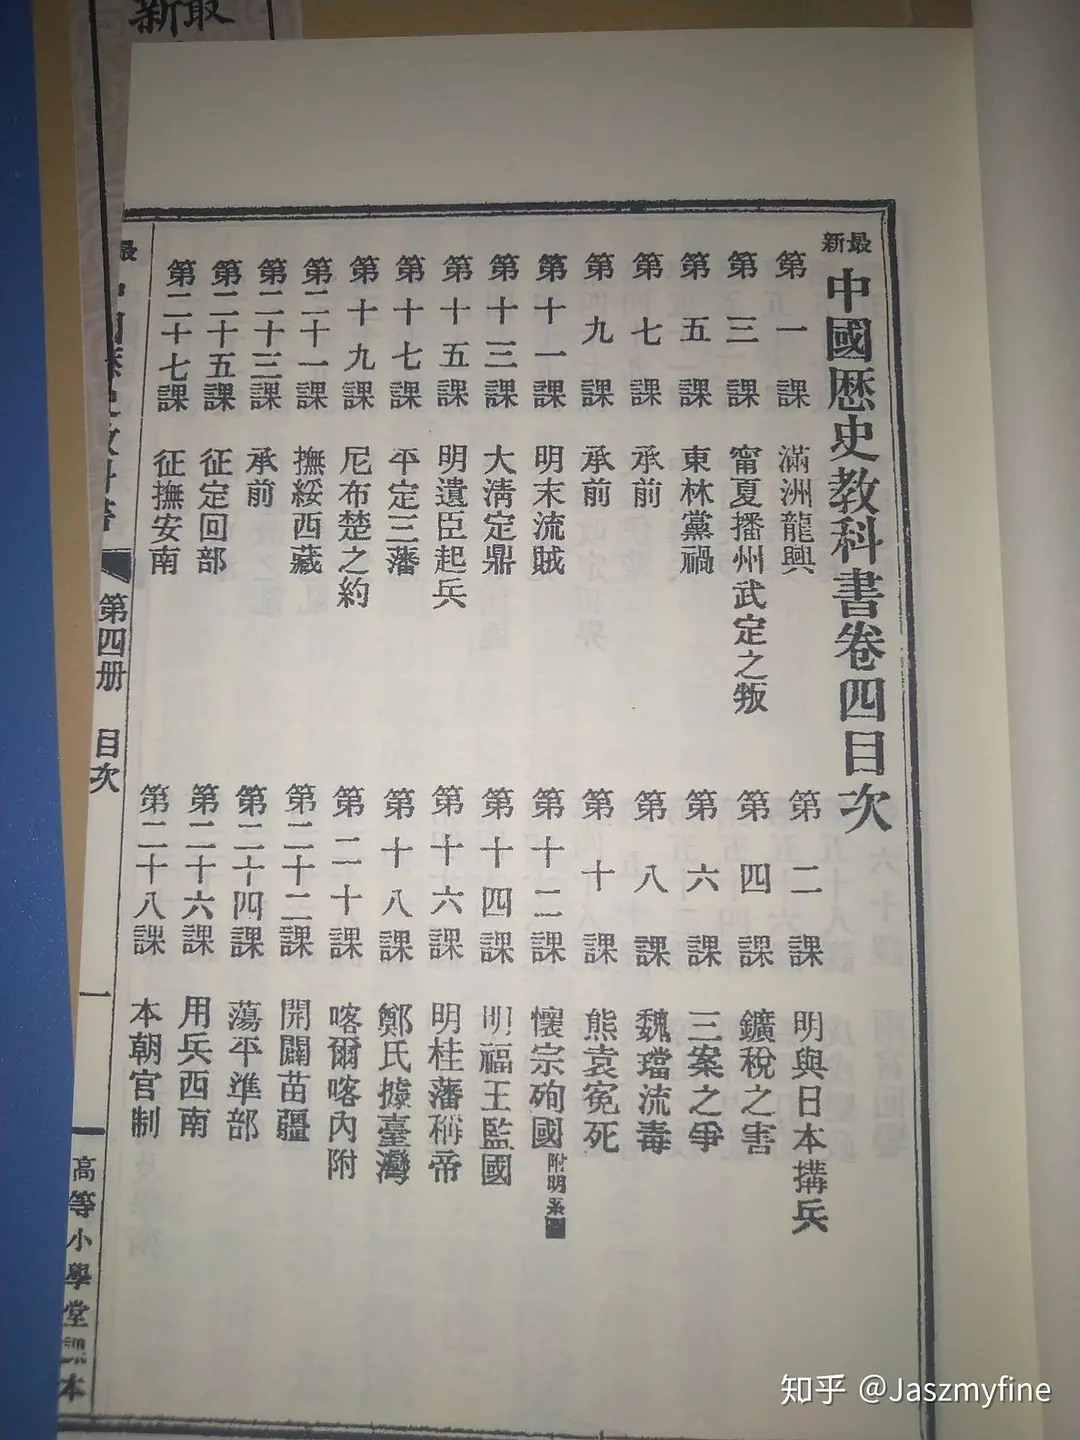 新最
最新中國歷史教科書卷四目次
第一課 滿洲龍興
第二課 明與日本搆兵
第三課 甯夏播州武定之叛
第四課 鑛稅之害
第五課 東林黨禍
第六課 三案之爭
第七課 承前
第八課 魏璫流毒
第九課 承前
第十課 熊袁冤死
第十一課 明末流賊
第十二課 懷宗殉國附明系圖
第十三課 大淸定鼎
第十四課 明福王監國
第十五課 明遺臣起兵
第十六課 明桂藩稱帝
第十七課 平定三藩
第十八課 鄭氏據臺灣
第十九課 尼布楚之約
第二十課 喀爾喀內附
第二十一課 撫綏西藏
第二十二課 開闢苗疆
第二十三課 承前
第二十四課 蕩平準部
第二十五課 征定回部
第二十六課 用兵西南
第二十七課 征撫安南
第二十八課 本朝官制
第四册 目次
一
高等小學堂課本
知乎 @Jaszmyfine